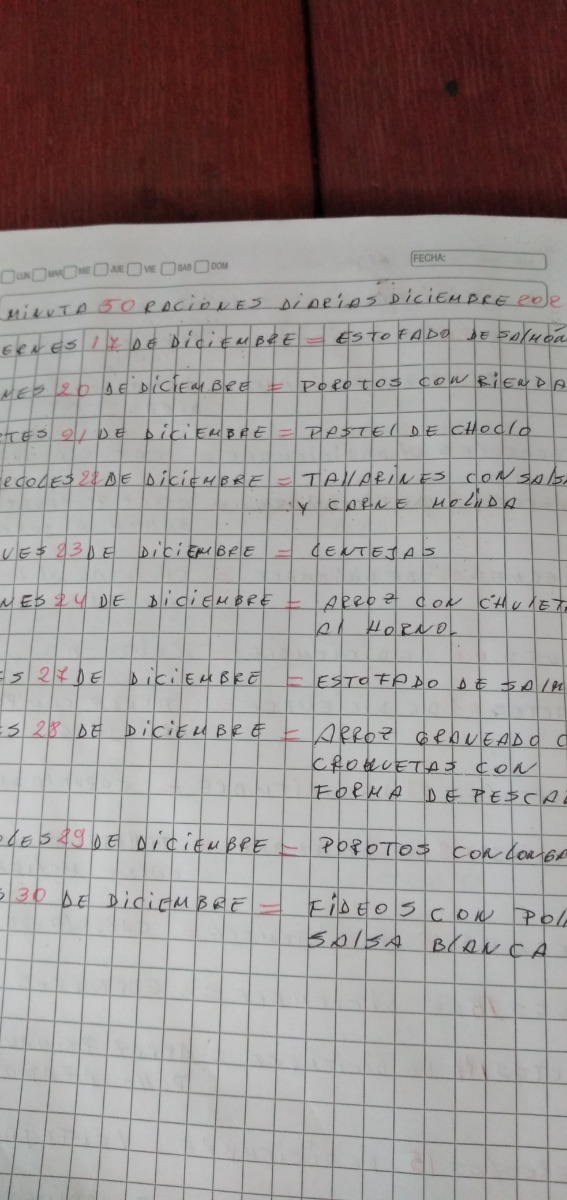 LUN MAR MIE JUE VIE SAB DOM
FECHA:
MINUTA 50 RACIONES DIARIAS DICIEMBRE 202
ERNES 17 DE DICIEMBRE = ESTOFADO DE SALMÓN
NES 20 DE DICIEMBRE = POROTOS CON RIENDA
TES 21 DE DICIEMBRE = PASTEL DE CHOCLO
ECOLES 22 DE DICIEMBRE = TALLARINES CON SALS
Y CARNE MOLIDA
VES 23 DE DICIEMBRE = LENTEJAS
NES 24 DE DICIEMBRE = ARROZ CON CHULET
AL HORNO.
S 27 DE DICIEMBRE = ESTOFADO DE SALM
ES 28 DE DICIEMBRE = ARROZ GRANEADO C
CROQUETAS CON
FORMA DE PESCA
OLES 29 DE DICIEMBRE = POROTOS CON LONGA
S 30 DE DICIEMBRE = FIDEOS CON POLL
SALSA BLANCA